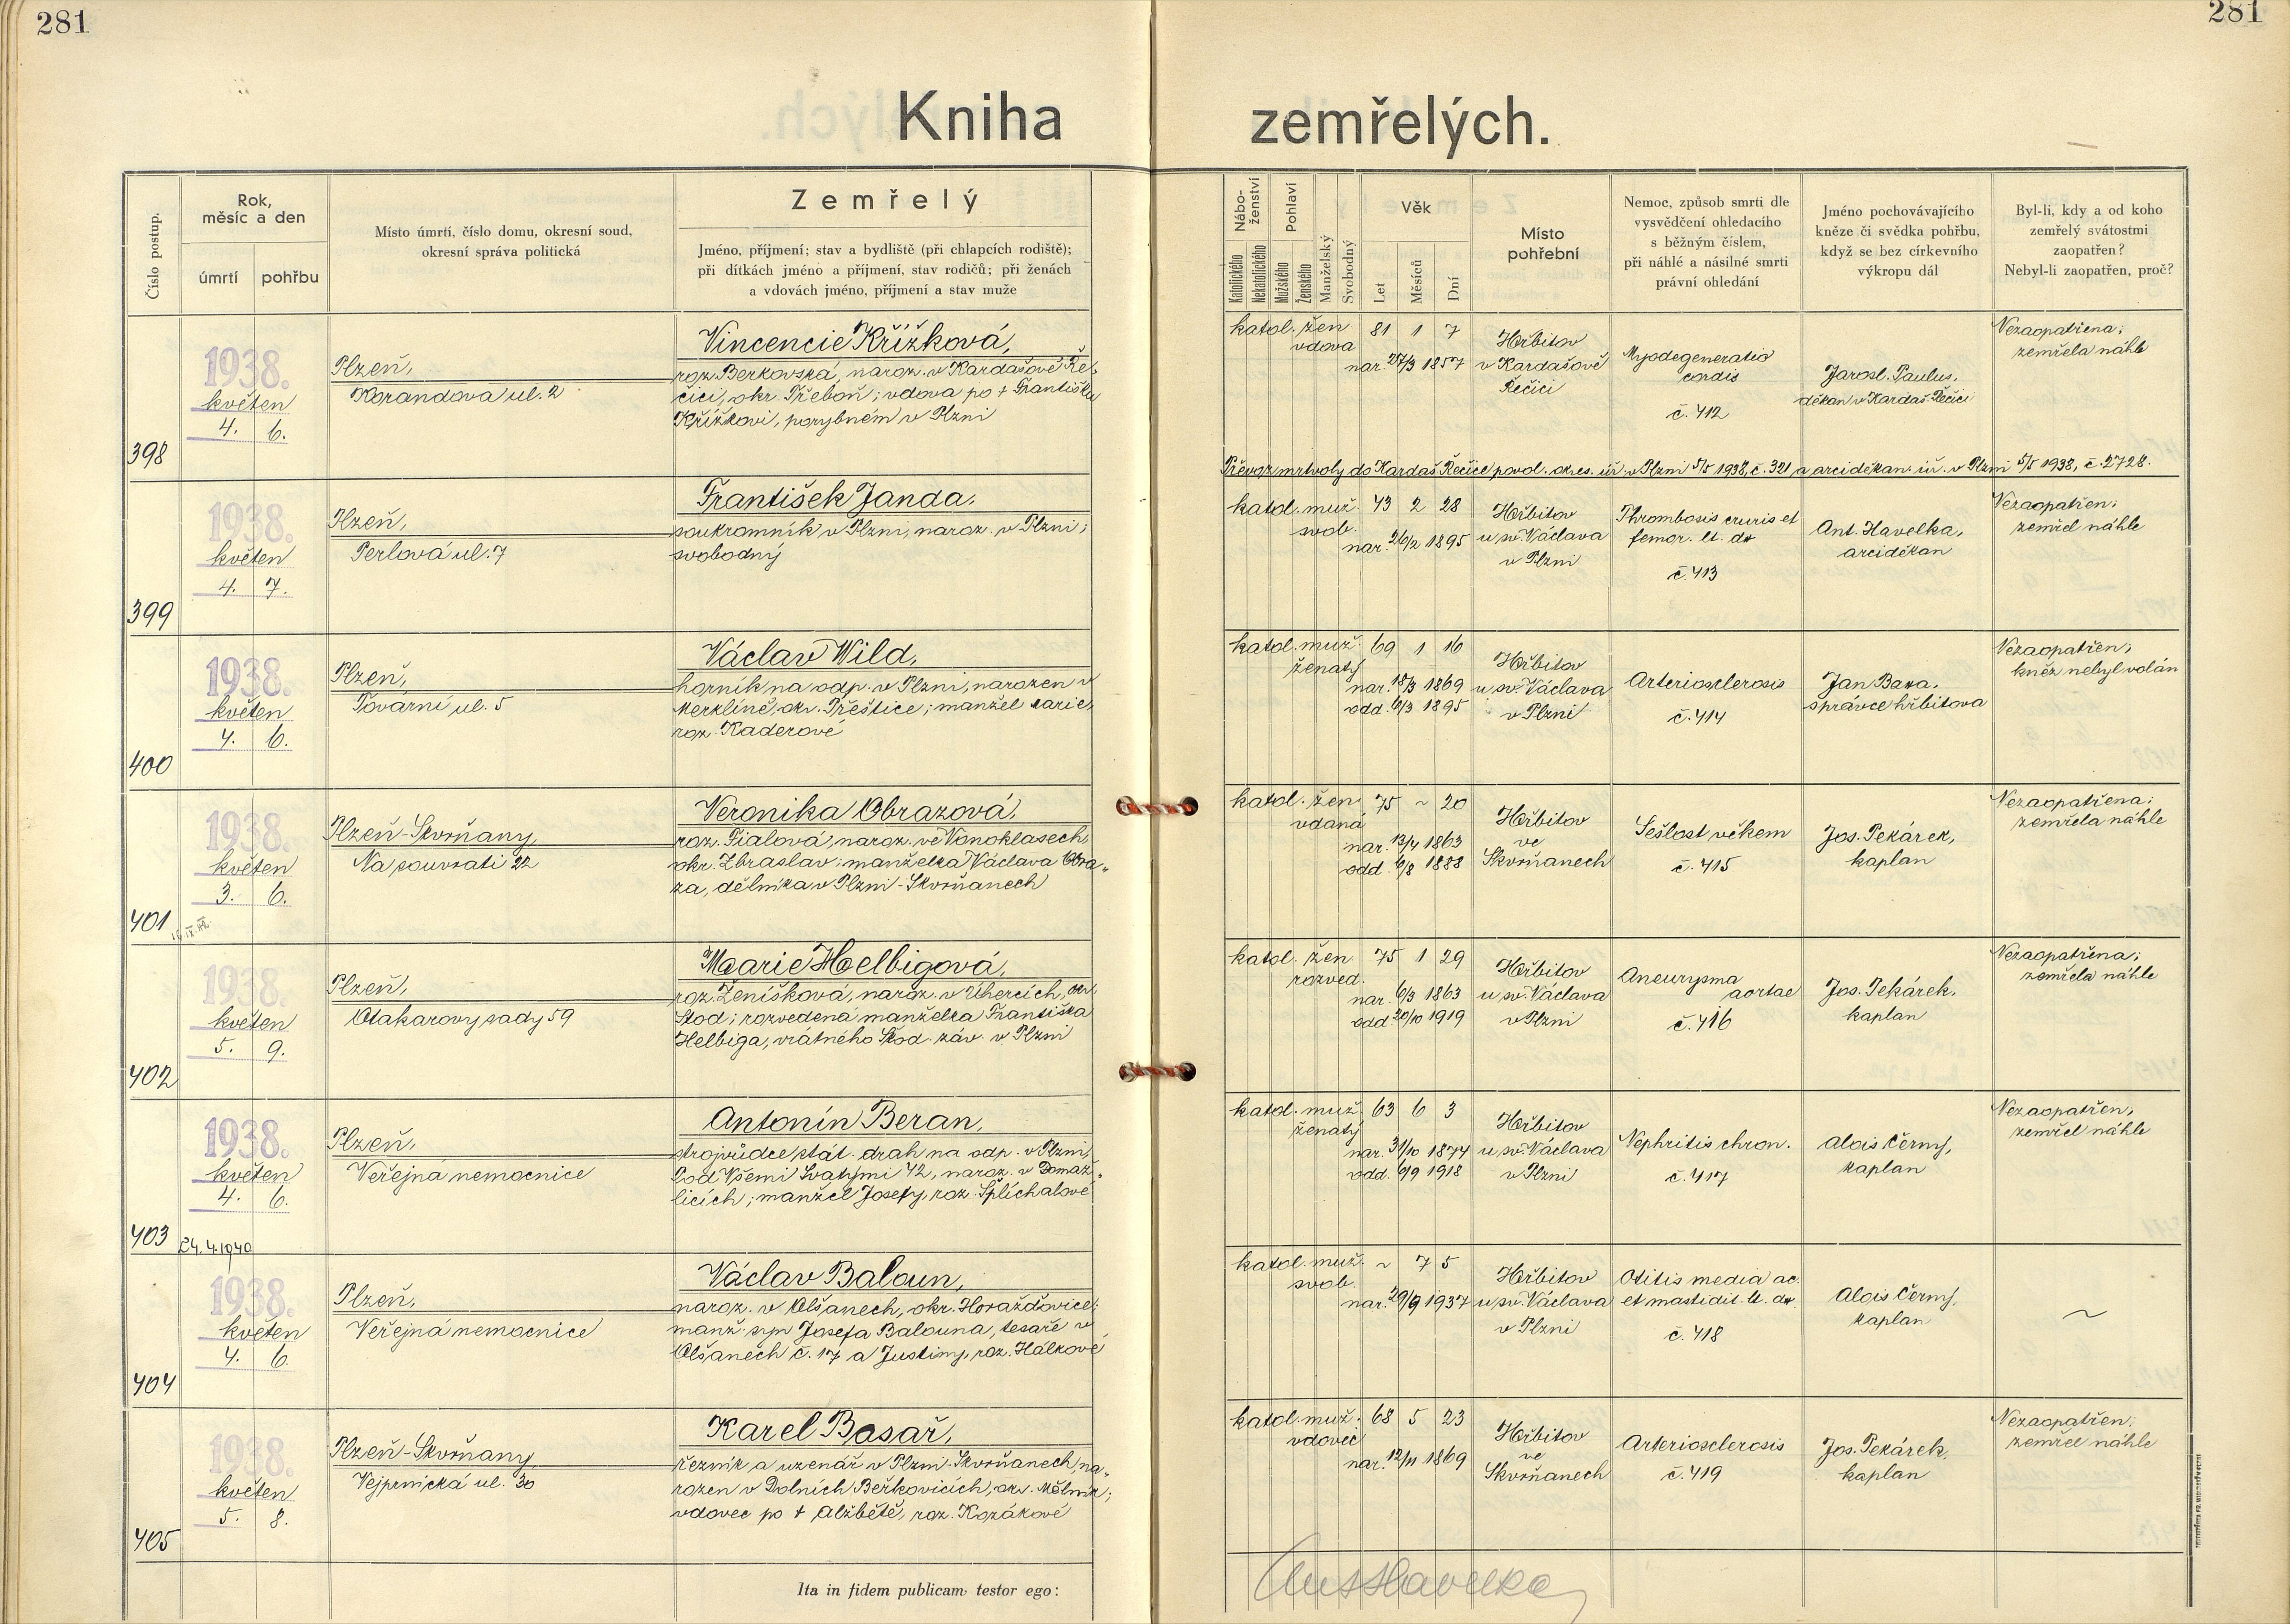 281
281
Kniha zemřelých.
Číslo postup.
Rok,
měsíc a den
úmrtí
pohřbu
Místo úmrtí, číslo domu, okresní soud,
okresní správa politická
Zemřelý
Jméno, příjmení; stav a bydliště (při chlapcích rodiště);
při dítkách jméno a příjmení, stav rodičů; při ženách
a vdovách jméno, příjmení a stav muže
Nábo-
ženství
Katolického
Nekatolického
Pohlaví
Mužského
Ženského
Manželský
Svobodný
Věk
Let
Měsíců
Dní
Místo
pohřební
Nemoc, způsob smrti dle
vysvědčení ohledacího
s běžným číslem,
při náhlé a násilné smrti
právní ohledání
Jméno pochovávajícího
kněze či svědka pohřbu,
když se bez církevního
výkropu dál
Byl-li, kdy a od koho
zemřelý svátostmi
zaopatřen?
Nebyl-li zaopatřen, proč?
398
1938.
květen
4. 6.
Plzeň,
Korandova ul. 2
Vincencie Křížková,
roz. Berkovská, naroz. v Kardašově Ře-
čici, okr. Třeboň; vdova po † Františku
Křížkovi, porybném v Plzni
katol. žen 81 1 7
vdova
nar. 27/3 1857
Hřbitov
v Kardašově
Řečici
Myodegeneratio
cordis
č. 412
Jarosl. Paulus,
děkan v Kardaš. Řečici
Nezaopatřena;
zemřela náhle
Převoz mrtvoly do Kardaš. Řečice povol. okres. úř. v Plzni 5/5 1938, č. 321 a arciděkan. úř. v Plzni 5/5 1938, č. 2728.
399
1938.
květen
4. 7.
Plzeň,
Perlová ul. 7
František Janda.
soukromník v Plzni, naroz. v Plzni;
svobodný
katol. muž. 43 2 28
svob.
nar. 26/2 1895
Hřbitov
u sv. Václava
v Plzni
Thrombosis cruris et
femor. lt. dx
č. 413
Ant. Havelka,
arciděkan
Nezaopatřen;
zemřel náhle
400
1938.
květen
4. 6.
Plzeň,
Tovární ul. 5
Václav Wild,
horník na odp. v Plzni, narozen v
Merklíně, okr. Přeštice; manžel Marie,
roz. Kaderové
katol. muž 69 1 16
ženatý
nar. 18/3 1869
odd. 6/3 1895
Hřbitov
u sv. Václava
v Plzni
Arteriosclerosis
č. 414
Jan Baxa,
správce hřbitova
Nezaopatřen;
kněz nebyl volán
401
1938.
květen
3. 6.
Plzeň-Skvrňany,
Na souvrati 22
Veronika Obrazová,
roz. Fialová, naroz. ve Vonoklasech,
okr. Zbraslav; manželka Václava Obra-
za, dělníka v Plzni-Skvrňanech
katol. žen 75 ~ 20
vdaná
nar. 13/4 1863
odd. 6/8 1888
Hřbitov
ve
Skvrňanech
Sešlost věkem
č. 415
Jos. Pekárek,
kaplan
Nezaopatřena;
zemřela náhle
402
1938.
květen
5. 9.
Plzeň,
Otakarovy sady 59
Marie Helbigová,
roz. Ženíšková, naroz. v Úhercích, okr.
Stod; rozvedená manželka Františka
Helbiga, vrátného Škod. záv. v Plzni
katol. žen 75 1 29
rozved.
nar. 6/3 1863
odd. 20/10 1919
Hřbitov
u sv. Václava
v Plzni
Aneurysma
aortae
č. 416
Jos. Pekárek,
kaplan
Nezaopatřena;
zemřela náhle
403
1938.
květen
4. 6.
24.4.1940
Plzeň,
Veřejná nemocnice
Antonín Beran,
strojvůdce stát. drah na odp. v Plzni,
Pod Všemi Svatými 42, naroz. v Domaž-
licích; manžel Josefy, roz. Šplíchalové
katol. muž. 63 6 3
ženatý
nar. 31/10 1874
odd. 6/9 1918
Hřbitov
u sv. Václava
v Plzni
Nephritis chron.
č. 417
Alois Černý,
kaplan
Nezaopatřen,
zemřel náhle
404
1938.
květen
4. 6.
Plzeň,
Veřejná nemocnice
Václav Baloun,
naroz. v Olšanech, okr. Horažďovice;
manž. syn Josefa Balouna, tesaře v
Olšanech č. 17 a Justiny, roz. Hálkové
katol. muž. ~ 7 5
svob.
nar. 29/9 1937
Hřbitov
u sv. Václava
v Plzni
Otitis media ac.
et mastidit. lt. dx.
č. 418
Alois Černý,
kaplan
~
405
1938.
květen
5. 8.
Plzeň-Skvrňany,
Vejprnická ul. 30
Karel Basař,
řezník a uzenář v Plzni-Skvrňanech, na-
rozen v Dolních Beřkovicích, okr. Mělník;
vdovec po † Alžbětě, roz. Kozákové
katol. muž. 68 5 23
vdovec
nar. 12/11 1869
Hřbitov
ve
Skvrňanech
Arteriosclerosis
č. 419
Jos. Pekárek,
kaplan
Nezaopatřen;
zemřel náhle
Ita in fidem publicam testor ego:
Ant Havelka